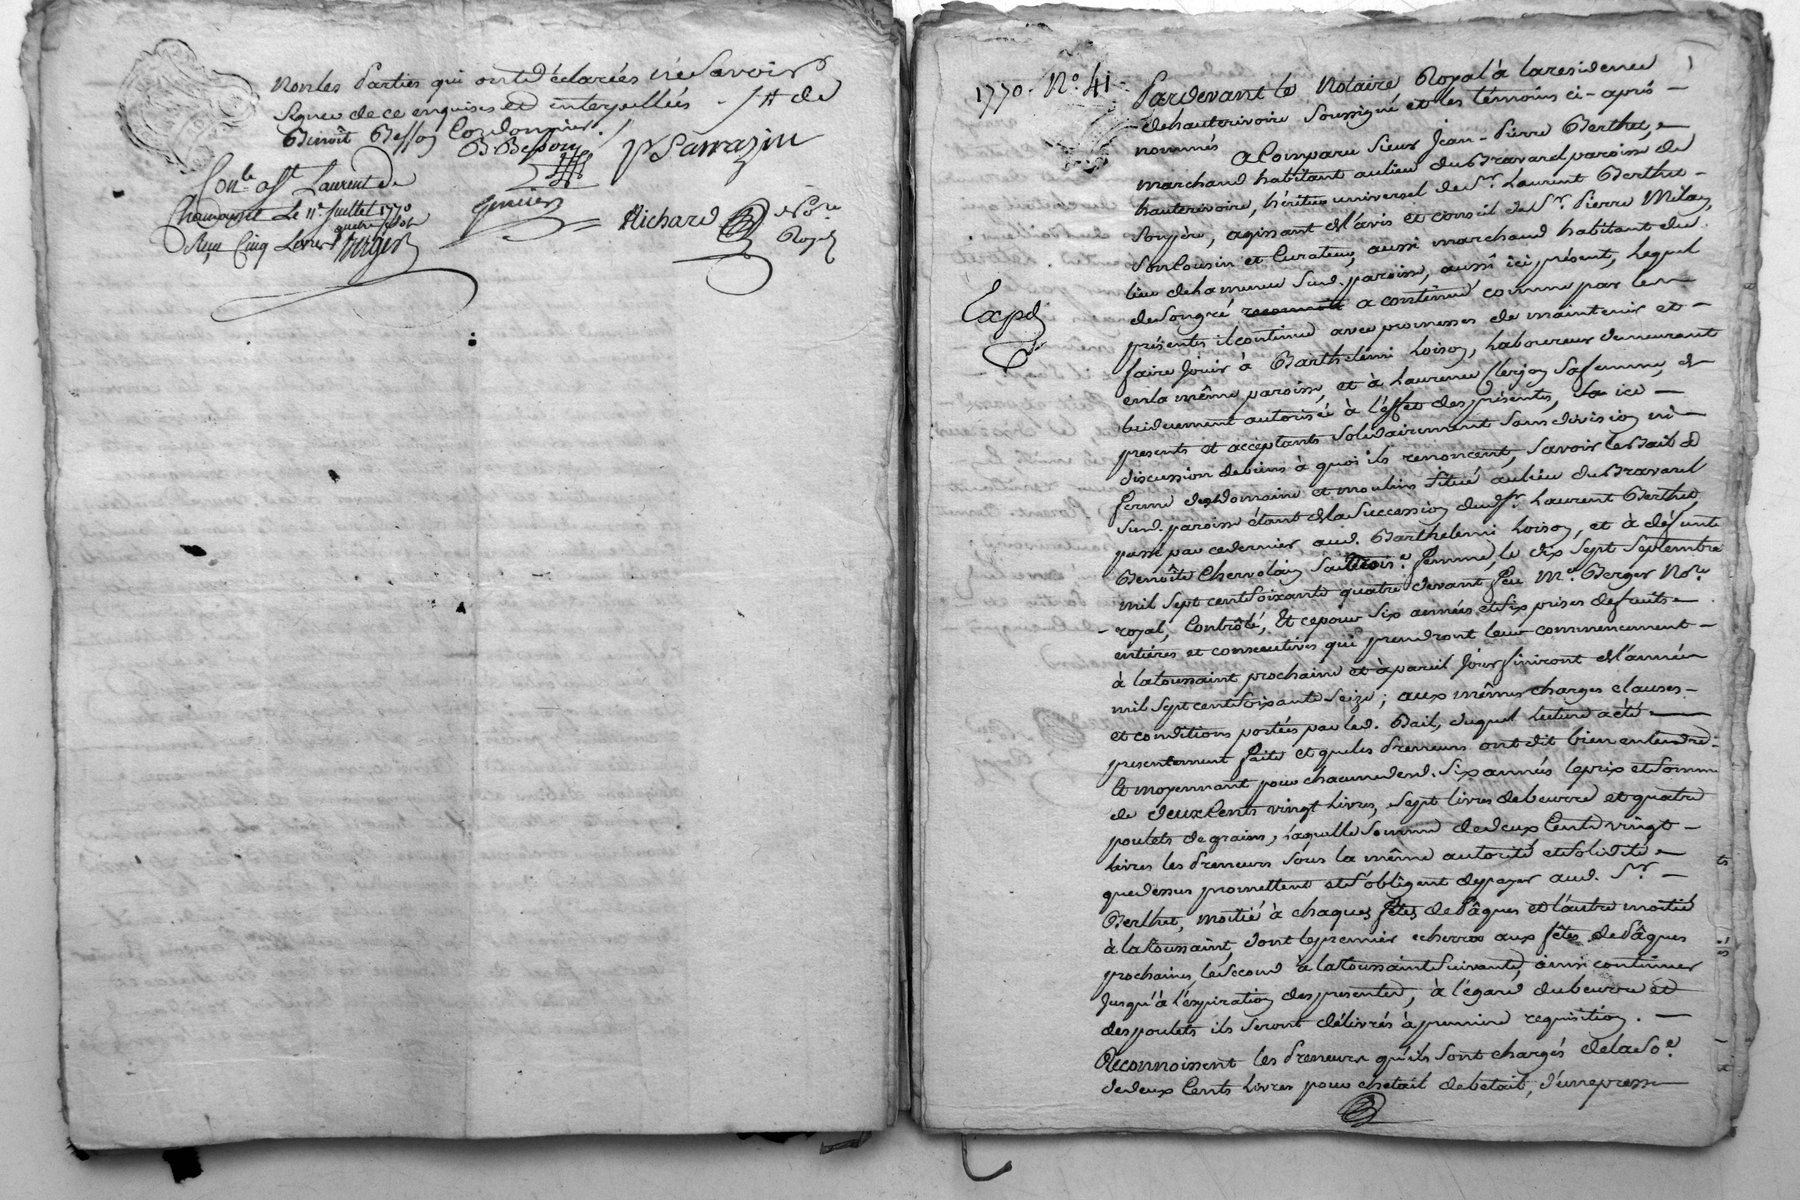 Non les Parties qui ont déclarées ne Savoir
Signer de ce enquises et interpellées. /# de
Benoit Besson Cordonnier./
B Besson
P Sarrazin
Con.le a St Laurent de
Chamousset Le 11e Juillet 1770
Reçu Cinq Livres
Berger
Richard
No.re
Royal
1770. No. 41.
Expd
1
Pardevant le Notaire Royal à la residence
de hauterivoire Soussigné et les témoins ci-après
nommés a Comparu Sieur Jean-Pierre Berthet,
marchand habitant au lieu du Bravard paroisse de
hauterivoire, héritier universel de Sr. Laurent Berthet
Son père, agissant de l'avis et conseil de Sr. Pierre Milan,
Son Cousin et Curateur, aussi marchand habitant du
lieu de Sud. paroisse, aussi ici présent, Lequel
de Son gré a continué comme par les
présentes il continue avec promesses de maintenir et
faire jouir à Barthelemi Loison, Laboureur demeurant
en la même paroisse, et à Laurence Clerjon Sa femme, de
lui duement autorisée à l'effet des présentes, ici
presents et acceptants Solidairement Sans division ni
discussion de biens à quoi ils renoncent, Savoir le Bail à
ferme des Domaine et moulins Situé au lieu du Bravard
Sud. paroisse étant de la Succession dud. Sr. Laurent Berthet,
passé par ce dernier aud. Barthelemi Loison, et à défunte
Benoite Chervolin Sa femme, le dix Sept Septembre
mil Sept cent Soixante quatre devant feu Me. Berger No.re
royal, Contrôlé, Et ce pour Six années et Six prises de fruits
entières et consecutives qui prendront leur commencement
à la toussaint prochaine et à pareil jour finiront de l'année
mil Sept cent Soixante Seize; aux mêmes charges clauses
et conditions portées par led. Bail, duquel lecture a été
presentement faite et que les Preneurs ont dit bien entendre:
Et moyennant pour chacune desd. Six années le prix et Somme
de deux Cents vingt Livres, Sept livres de beurre et quatre
poulets de grains, laquelle Somme de deux Cents vingt
Livres les Preneurs Sous la même autorité et Solidité
que dessus promettent et S'obligent de payer aud. Sr.
Berthet, moitié à chaques fêtes de Pâques et l'autre moitié
à la toussaint, dont le premier echerra aux fêtes de Pâques
prochaines, le Second à la toussaint Suivante, ainsi continuer
Jusqu'à l'expiration des presentes, à l'égard du beurre et
des poulets ils Seront délivrés à premiere requisition.
Reconnoissent les Preneurs qu'ils Sont chargés de la So.e
de deux Cents Livres pour chetail de betail, d'une presse